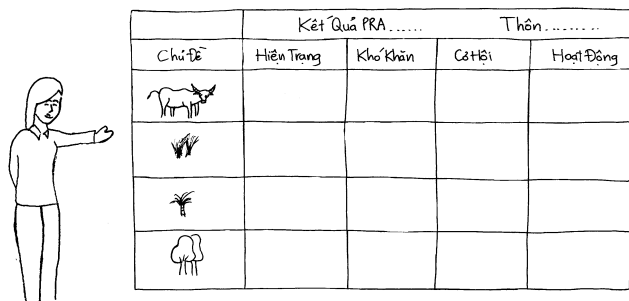 Kết Quả PRA...... Thôn.........
Chủ Đề Hiện Trạng Khó Khăn Cơ Hội Hoạt Động